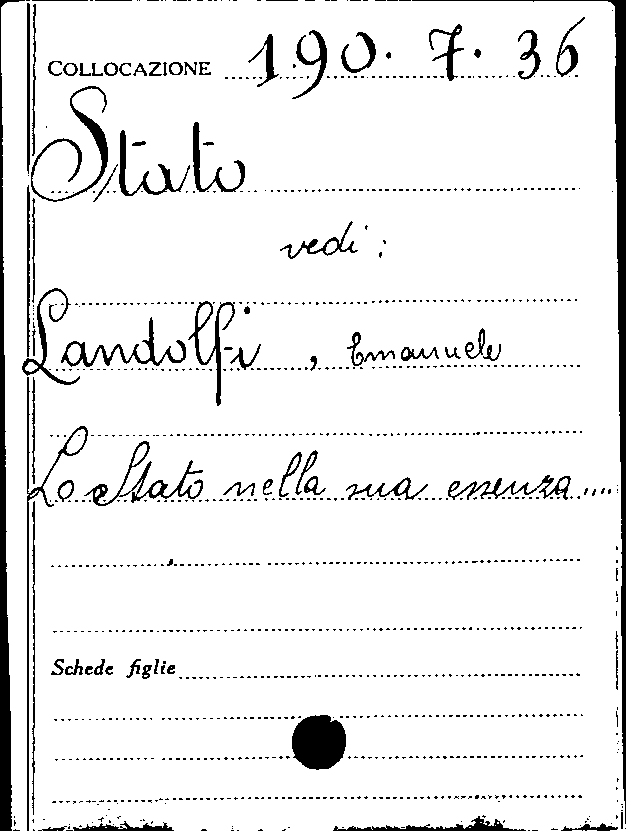 COLLOCAZIONE 190. 7. 36
Stato
vedi:
Landolfi, Emanuele
Lo Stato nella sua essenza....
Schede figlie